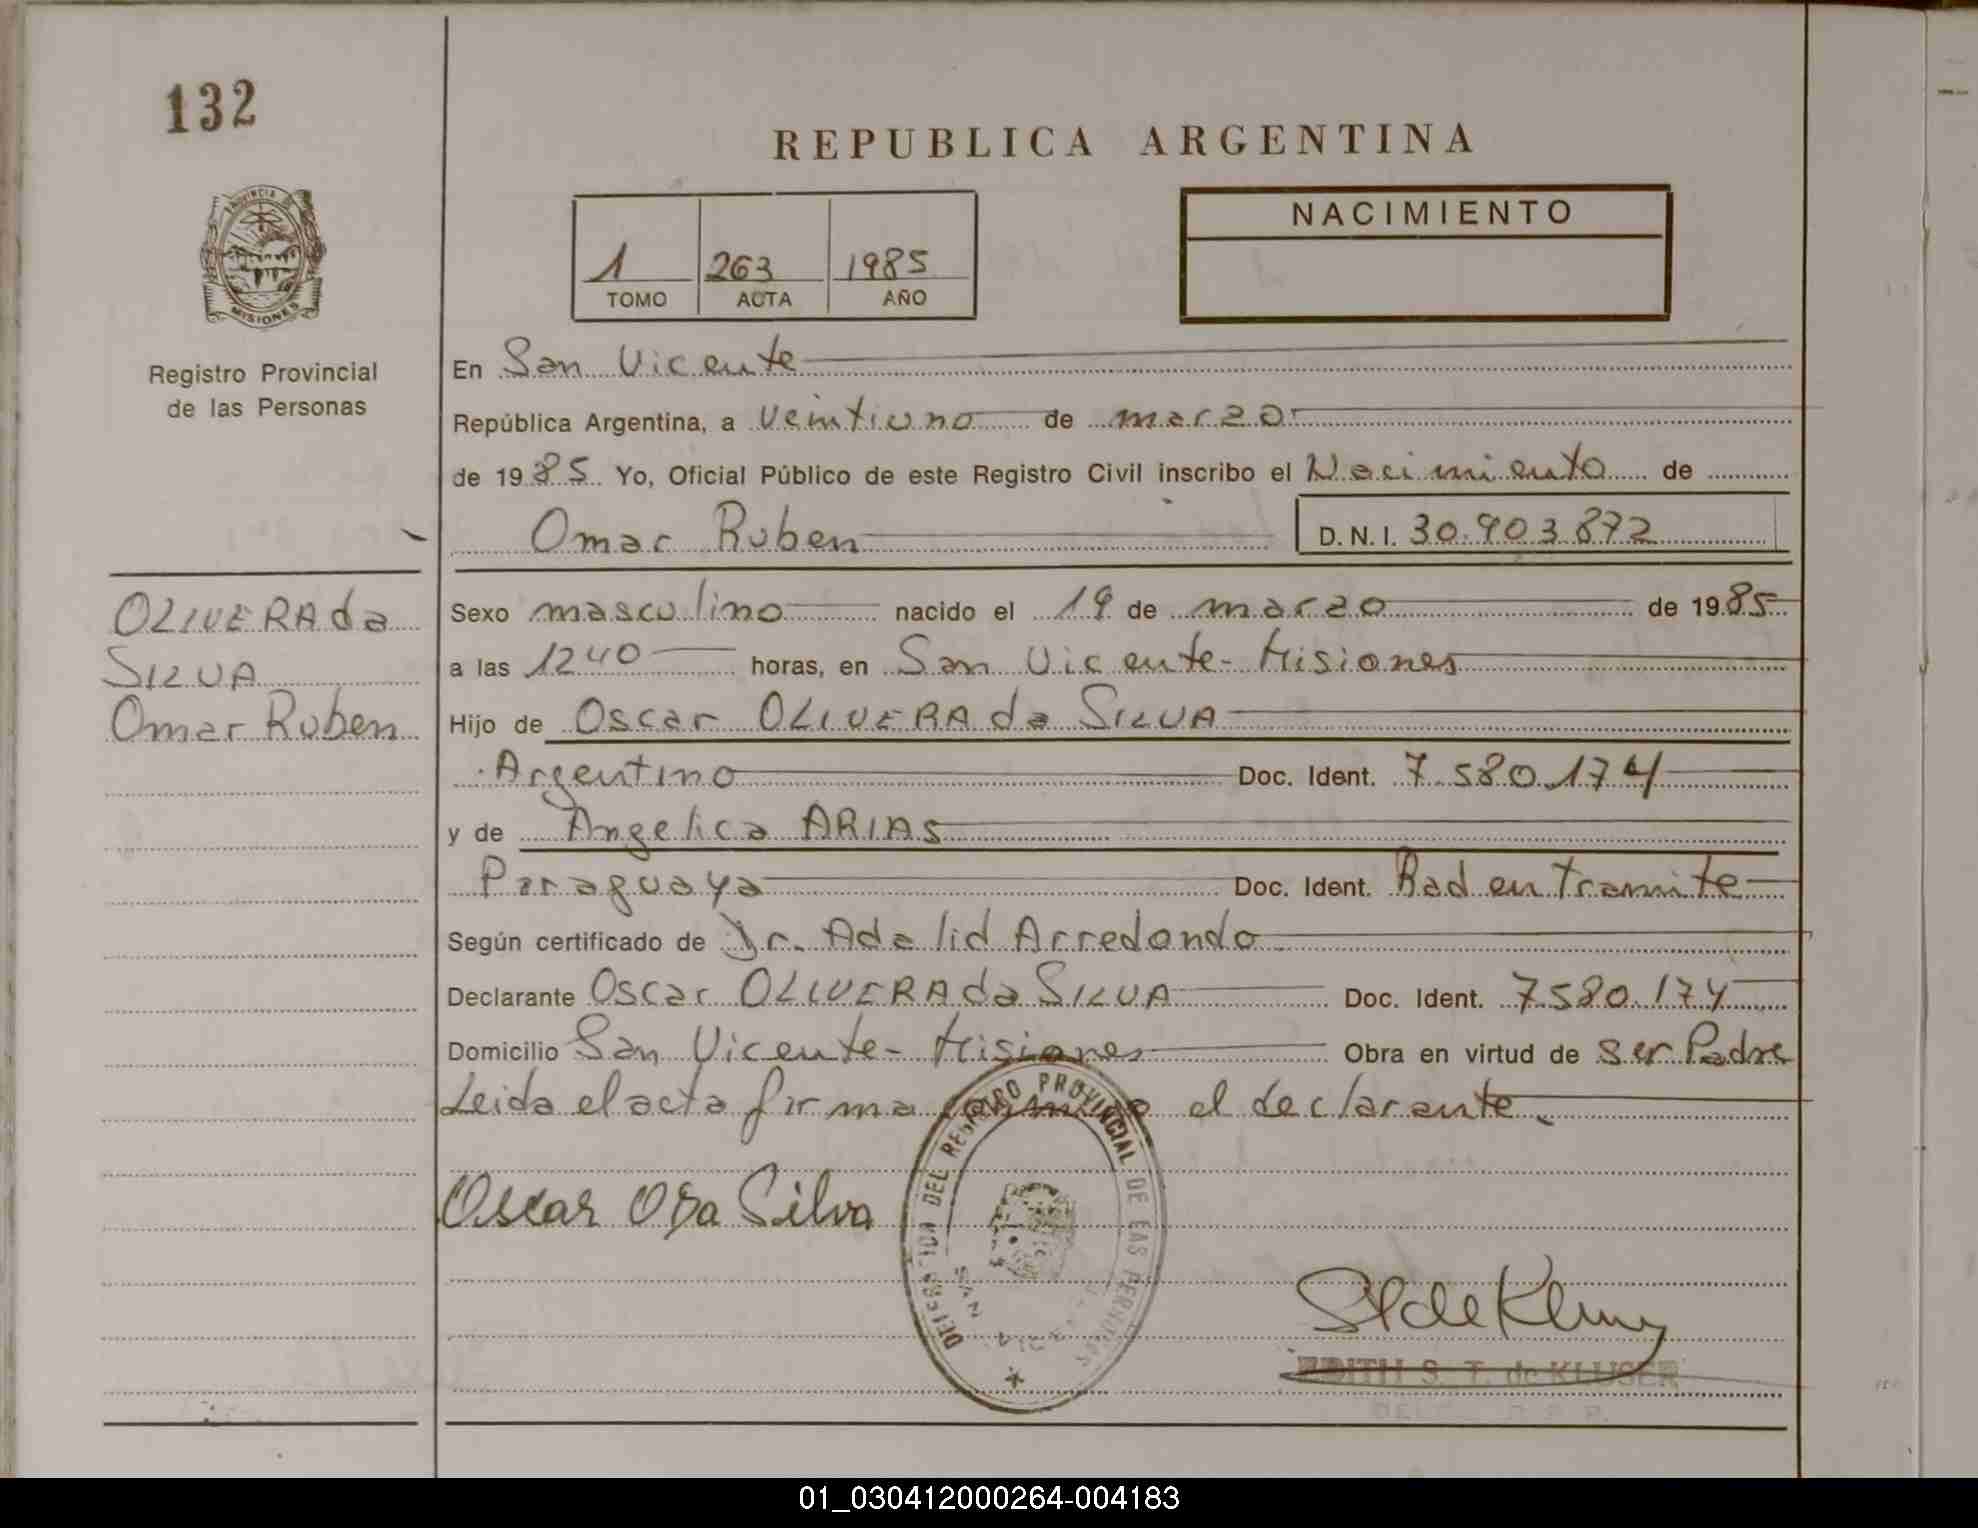 132
REPUBLICA ARGENTINA
PROVINCIA DE
MISIONES
1 263 1985
TOMO ACTA AÑO
NACIMIENTO
Registro Provincial
de las Personas
En San Vicente
República Argentina, a veintiuno de marzo
de 1985 Yo, Oficial Público de este Registro Civil inscribo el Nacimiento de
Omar Ruben D.N.I. 30.903.872
OLIVERA da
SILVA
Omar Ruben
Sexo masculino nacido el 19 de marzo de 1985
a las 1240 horas, en San Vicente - Misiones
Hijo de Oscar OLIVERA da SILVA
Argentino Doc. Ident. 7.580.174
y de Angelica ARIAS
Paraguaya Doc. Ident. Rad en Tramite
Según certificado de Dr. Adalid Arredondo
Declarante Oscar OLIVERA da SILVA Doc. Ident. 7.580.174
Domicilio San Vicente - Misiones Obra en virtud de ser Padre
Leida el acta firma conmigo el declarante.
Oscar O Da Silva
DELEGACION DEL REGISTRO PROVINCIAL DE LAS PERSONAS
SAN VICENTE
EDITH S. T. de KLUSER
01_030412000264-004183